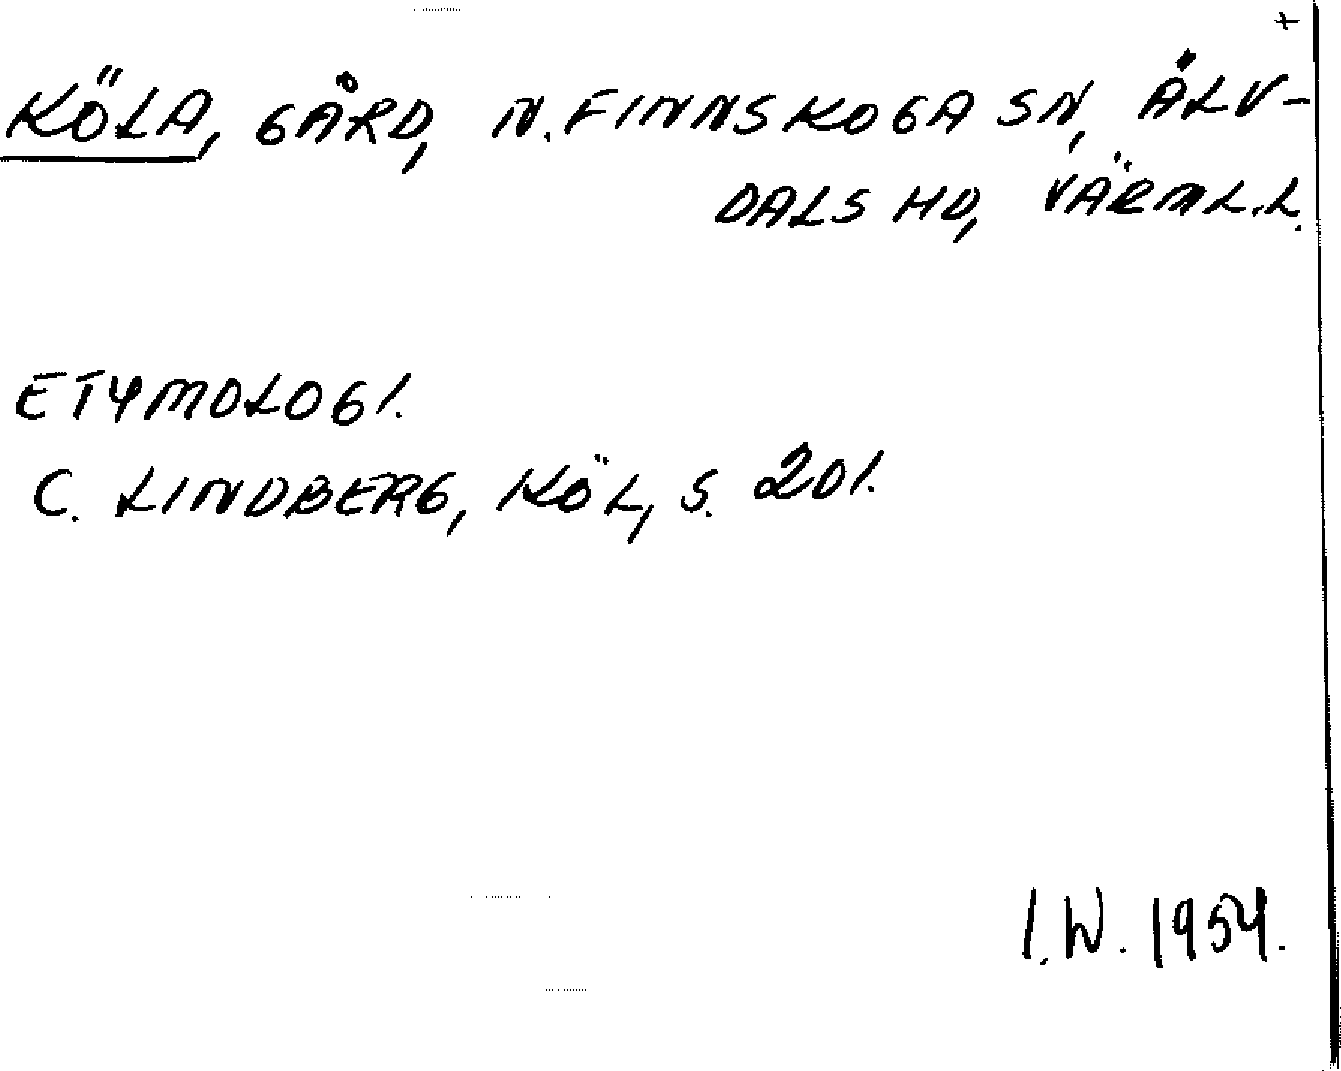 +
KÖLA, GÅRD, N. FINNSKOGA SN, ÄLV-
DALS HD, VÄRML.L.
ETYMOLOGI.
C. LINDBERG, KÖL, S. 201.
I.W. 1954.